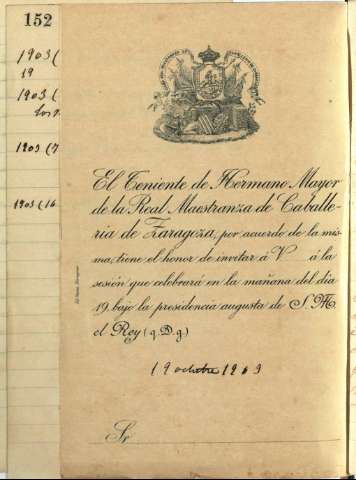 152
1903 (
19
1903 (
1903 (7
1903 (16
El Teniente de Hermano Mayor
de la Real Maestranza de Caballe-
ria de Zaragoza, por acuerdo de la mis-
ma, tiene el honor de invitar á V á la
sesión que celebrará en la mañana del dia
19, bajo la presidencia augusta de S. M.
el Rey (q. D. g.)
19 octubre 1903
Sr